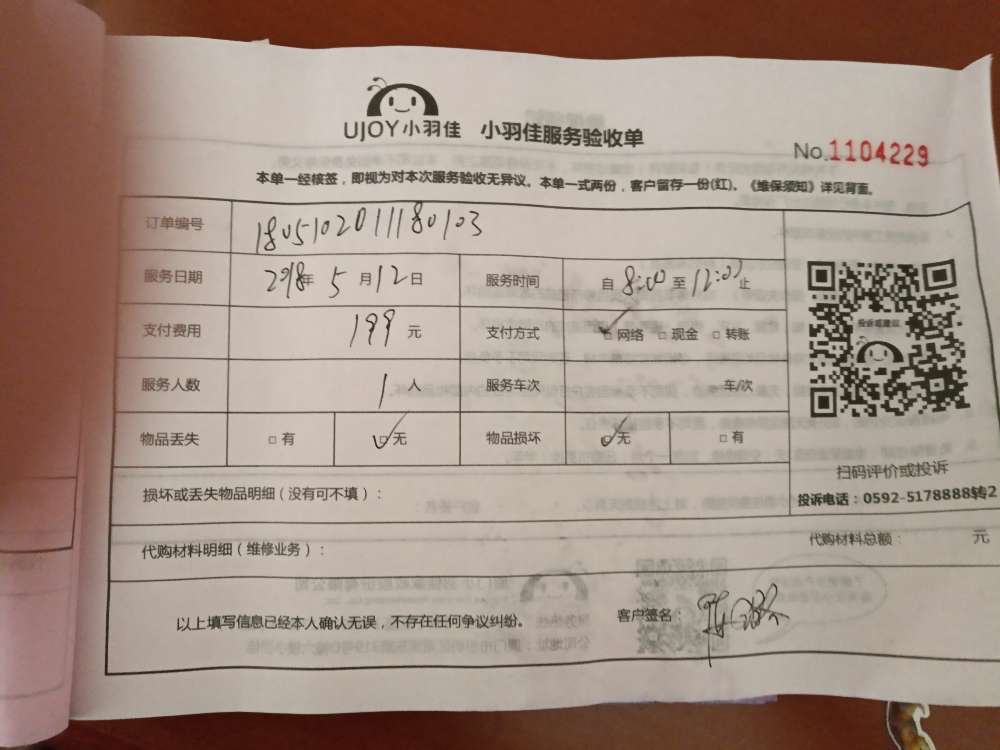 UJOY小羽佳 小羽佳服务验收单
No.1104229
本单一经核签，即视为对本次服务验收无异议。本单一式两份，客户留存一份(红)。《维保须知》详见背面。
订单编号 180510201118010３
服务日期 2018年 5 月 12 日 服务时间 自 8:00 至 12:00 止
支付费用 199 元 支付方式 □ 网络 □ 现金 □ 转账
服务人数 1 人 服务车次 车/次
物品丢失 □ 有 □ 无 物品损坏 □ 无 □ 有
投诉或建议
扫码评价或投诉
投诉电话：0592-5178888转2
损坏或丢失物品明细（没有可不填）：
代购材料明细（维修业务）： 代购材料总额： 元
以上填写信息已经本人确认无误，不存在任何争议纠纷。 客户签名：